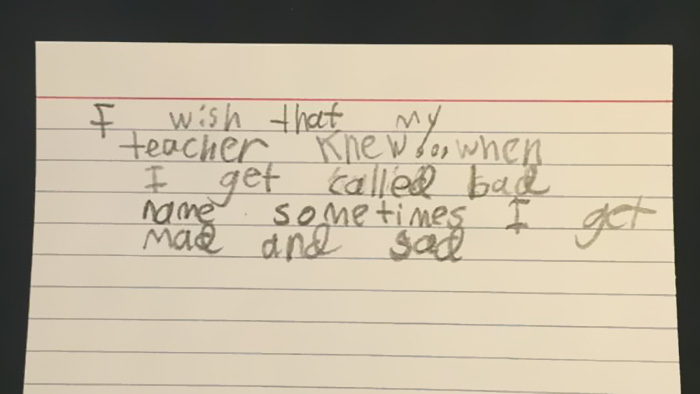 I wish that my
teacher knew... when
I get called bad
name sometimes I get
mad and sad